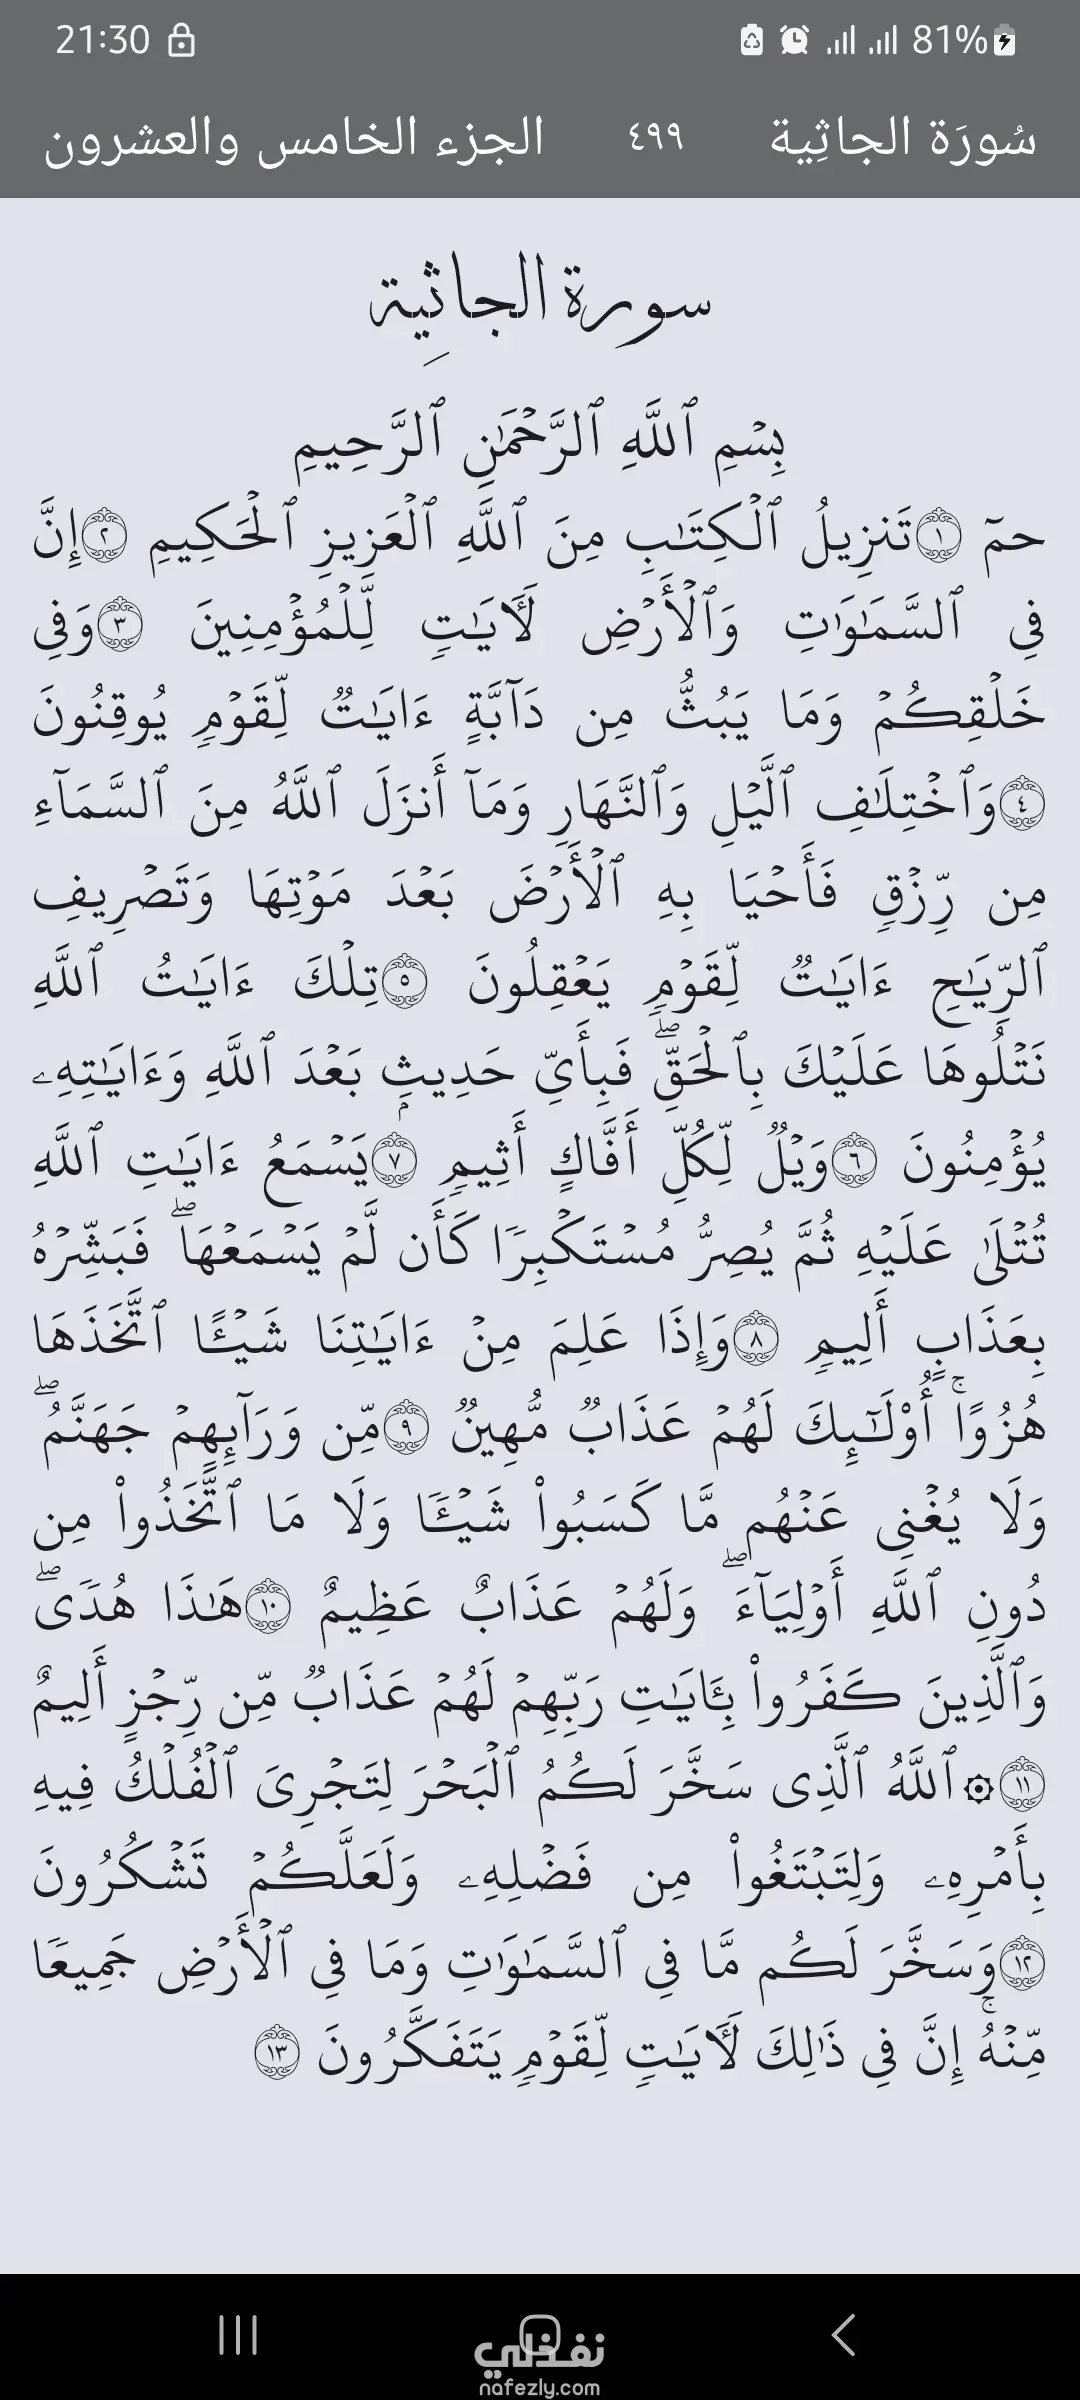 21:30
81%
سُورَة الجاثِية ٤٩٩ الجزء الخامس والعشرون
سورة الجاثِية
بِسۡمِ ٱللَّهِ ٱلرَّحۡمَٰنِ ٱلرَّحِيمِ
حمٓ ١ تَنزِيلُ ٱلۡكِتَٰبِ مِنَ ٱللَّهِ ٱلۡعَزِيزِ ٱلۡحَكِيمِ ٢ إِنَّ
فِي ٱلسَّمَٰوَٰتِ وَٱلۡأَرۡضِ لَأٓيَٰتٖ لِّلۡمُؤۡمِنِينَ ٣ وَفِي
خَلۡقِكُمۡ وَمَا يَبُثُّ مِن دَآبَّةٍ ءَايَٰتٞ لِّقَوۡمٖ يُوقِنُونَ
٤ وَٱخۡتِلَٰفِ ٱلَّيۡلِ وَٱلنَّهَارِ وَمَآ أَنزَلَ ٱللَّهُ مِنَ ٱلسَّمَآءِ
مِن رِّزۡقٖ فَأَحۡيَا بِهِ ٱلۡأَرۡضَ بَعۡدَ مَوۡتِهَا وَتَصۡرِيفِ
ٱلرِّيَٰحِ ءَايَٰتٞ لِّقَوۡمٖ يَعۡقِلُونَ ٥ تِلۡكَ ءَايَٰتُ ٱللَّهِ
نَتۡلُوهَا عَلَيۡكَ بِٱلۡحَقِّۖ فَبِأَيِّ حَدِيثِۭ بَعۡدَ ٱللَّهِ وَءَايَٰتِهِۦ
يُؤۡمِنُونَ ٦ وَيۡلٞ لِّكُلِّ أَفَّاكٍ أَثِيمٖ ٧ يَسۡمَعُ ءَايَٰتِ ٱللَّهِ
تُتۡلَىٰ عَلَيۡهِ ثُمَّ يُصِرُّ مُسۡتَكۡبِرٗا كَأَن لَّمۡ يَسۡمَعۡهَاۖ فَبَشِّرۡهُ
بِعَذَابٍ أَلِيمٖ ٨ وَإِذَا عَلِمَ مِنۡ ءَايَٰتِنَا شَيۡـًٔا ٱتَّخَذَهَا
هُزُوًاۚ أُوْلَٰٓئِكَ لَهُمۡ عَذَابٞ مُّهِينٞ ٩ مِّن وَرَآئِهِمۡ جَهَنَّمُۖ
وَلَا يُغۡنِي عَنۡهُم مَّا كَسَبُواْ شَيۡـٔٗا وَلَا مَا ٱتَّخَذُواْ مِن
دُونِ ٱللَّهِ أَوۡلِيَآءَۖ وَلَهُمۡ عَذَابٌ عَظِيمٌ ١٠ هَٰذَا هُدٗىۖ
وَٱلَّذِينَ كَفَرُواْ بِـَٔايَٰتِ رَبِّهِمۡ لَهُمۡ عَذَابٞ مِّن رِّجۡزٍ أَلِيمٌ
١١ ۞ٱللَّهُ ٱلَّذِي سَخَّرَ لَكُمُ ٱلۡبَحۡرَ لِتَجۡرِيَ ٱلۡفُلۡكُ فِيهِ
بِأَمۡرِهِۦ وَلِتَبۡتَغُواْ مِن فَضۡلِهِۦ وَلَعَلَّكُمۡ تَشۡكُرُونَ
١٢ وَسَخَّرَ لَكُم مَّا فِي ٱلسَّمَٰوَٰتِ وَمَا فِي ٱلۡأَرۡضِ جَمِيعٗا
مِّنۡهُۚ إِنَّ فِي ذَٰلِكَ لَأٓيَٰتٖ لِّقَوۡمٖ يَتَفَكَّرُونَ ١٣
نفذلي
nafezly.com